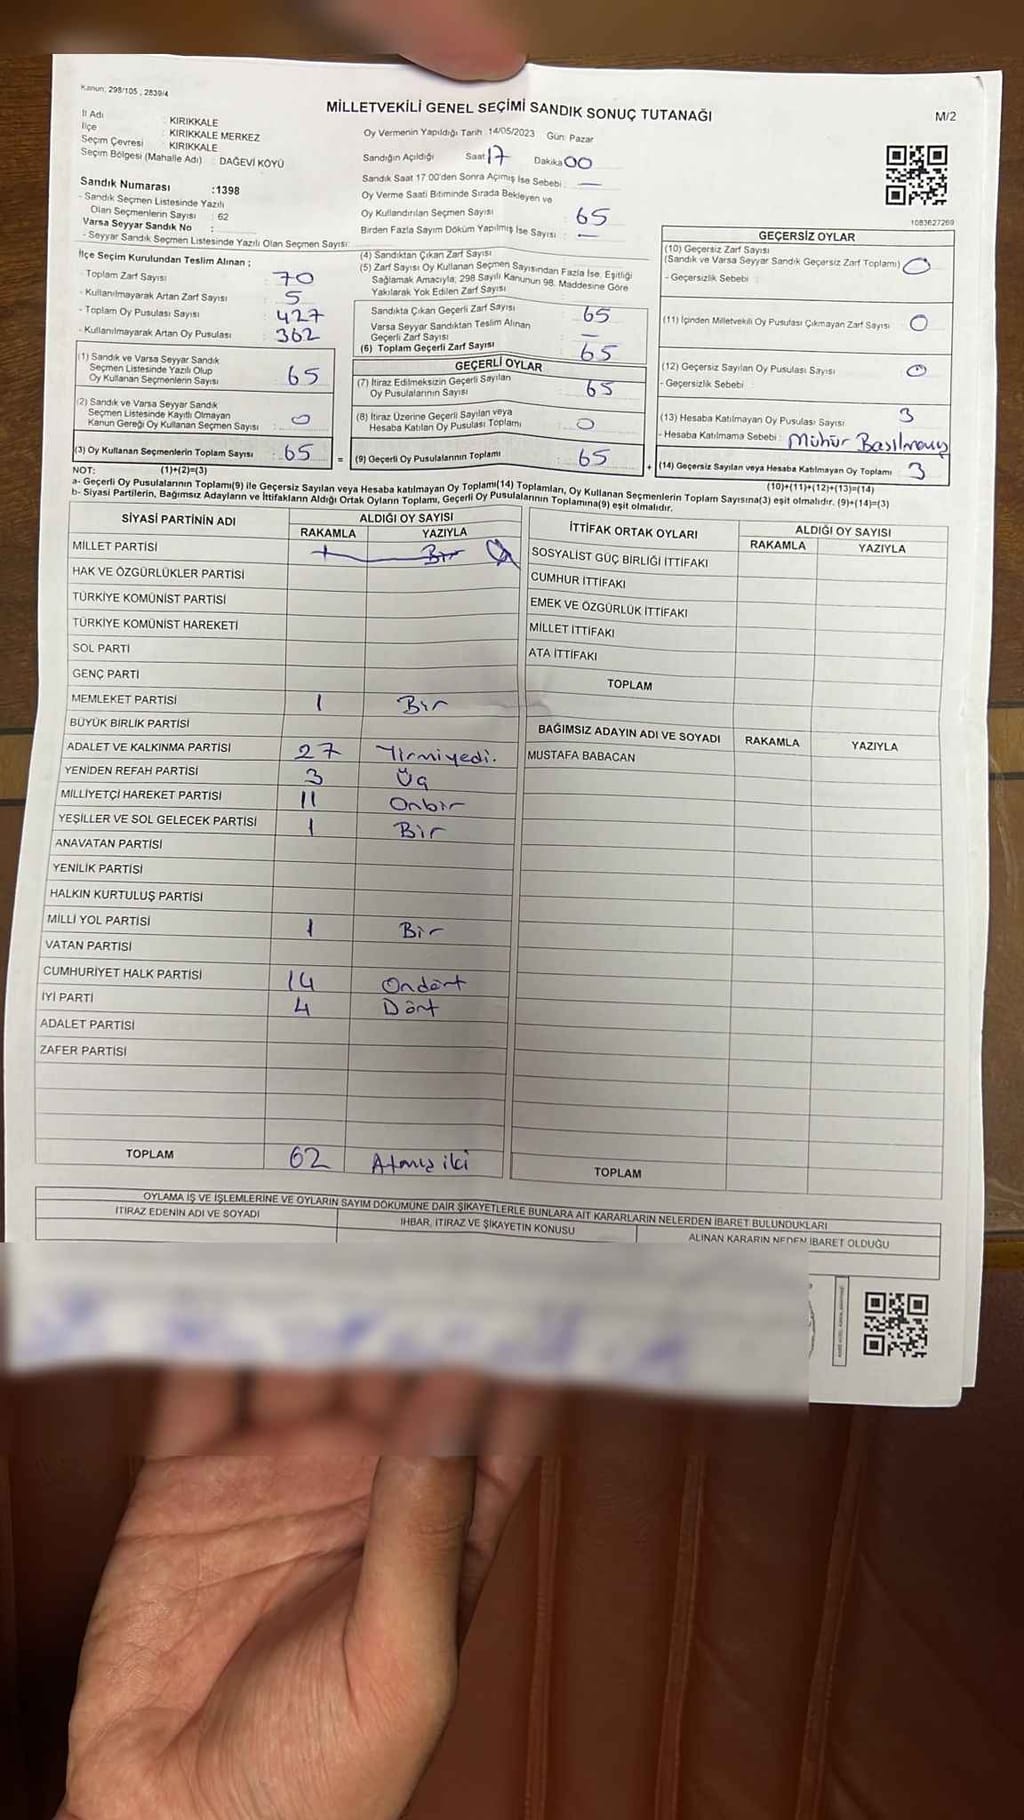 Kanun: 298/105 , 2839/4
MİLLETVEKİLİ GENEL SEÇİMİ SANDIK SONUÇ TUTANAĞI
M/2
İl Adı : KIRIKKALE
İlçe : KIRIKKALE MERKEZ
Seçim Çevresi : KIRIKKALE
Seçim Bölgesi (Mahalle Adı) : DAĞEVİ KÖYÜ
Sandık Numarası :1398
- Sandık Seçmen Listesinde Yazılı
Olan Seçmenlerin Sayısı : 62
Varsa Seyyar Sandık No :
- Seyyar Sandık Seçmen Listesinde Yazılı Olan Seçmen Sayısı:
Oy Vermenin Yapıldığı Tarih :14/05/2023 Gün: Pazar
Sandığın Açıldığı Saat 17 Dakika 00
Sandık Saat 17.00'den Sonra Açılmış İse Sebebi : —
Oy Verme Saati Bitiminde Sırada Bekleyen ve
Oy Kullandırılan Seçmen Sayısı 65
Birden Fazla Sayım Döküm Yapılmış İse Sayısı : —
1083627269
İlçe Seçim Kurulundan Teslim Alınan ;
- Toplam Zarf Sayısı : 70
- Kullanılmayarak Artan Zarf Sayısı : 5
- Toplam Oy Pusulası Sayısı : 427
- Kullanılmayarak Artan Oy Pusulası : 362
(1) Sandık ve Varsa Seyyar Sandık
Seçmen Listesinde Yazılı Olup
Oy Kullanan Seçmenlerin Sayısı : 65
(2) Sandık ve Varsa Seyyar Sandık
Seçmen Listesinde Kayıtlı Olmayan
Kanun Gereği Oy Kullanan Seçmen Sayısı : 0
(3) Oy Kullanan Seçmenlerin Toplam Sayısı : 65
(4) Sandıktan Çıkan Zarf Sayısı
(5) Zarf Sayısı Oy Kullanan Seçmen Sayısından Fazla İse, Eşitliği
Sağlamak Amacıyla, 298 Sayılı Kanunun 98. Maddesine Göre
Yakılarak Yok Edilen Zarf Sayısı
Sandıkta Çıkan Geçerli Zarf Sayısı : 65
Varsa Seyyar Sandıktan Teslim Alınan
Geçerli Zarf Sayısı : —
(6) Toplam Geçerli Zarf Sayısı : 65
GEÇERLİ OYLAR
(7) İtiraz Edilmeksizin Geçerli Sayılan
Oy Pusulalarının Sayısı : 65
(8) İtiraz Üzerine Geçerli Sayılan veya
Hesaba Katılan Oy Pusulası Toplamı : 0
= (9) Geçerli Oy Pusulalarının Toplamı : 65
GEÇERSİZ OYLAR
(10) Geçersiz Zarf Sayısı
(Sandık ve Varsa Seyyar Sandık Geçersiz Zarf Toplamı) : 0
- Geçersizlik Sebebi :
(11) İçinden Milletvekili Oy Pusulası Çıkmayan Zarf Sayısı : 0
(12) Geçersiz Sayılan Oy Pusulası Sayısı : 0
- Geçersizlik Sebebi :
(13) Hesaba Katılmayan Oy Pusulası Sayısı : 3
- Hesaba Katılmama Sebebi : Mühür Basılmamış
+ (14) Geçersiz Sayılan veya Hesaba Katılmayan Oy Toplamı : 3
NOT: (1)+(2)=(3)
(10)+(11)+(12)+(13)=(14)
a- Geçerli Oy Pusulalarının Toplamı(9) ile Geçersiz Sayılan veya Hesaba katılmayan Oy Toplamı(14) Toplamları, Oy Kullanan Seçmenlerin Toplam Sayısına(3) eşit olmalıdır. (9)+(14)=(3)
b- Siyasi Partilerin, Bağımsız Adayların ve İttifakların Aldığı Ortak Oyların Toplamı, Geçerli Oy Pusulalarının Toplamına(9) eşit olmalıdır.
SİYASİ PARTİNİN ADI ALDIĞI OY SAYISI
RAKAMLA YAZIYLA
MİLLET PARTİSİ 1 Bir
HAK VE ÖZGÜRLÜKLER PARTİSİ
TÜRKİYE KOMÜNİST PARTİSİ
TÜRKİYE KOMÜNİST HAREKETİ
SOL PARTİ
GENÇ PARTİ
MEMLEKET PARTİSİ 1 Bir
BÜYÜK BİRLİK PARTİSİ
ADALET VE KALKINMA PARTİSİ 27 Yirmiyedi.
YENİDEN REFAH PARTİSİ 3 Üç
MİLLİYETÇİ HAREKET PARTİSİ 11 Onbir
YEŞİLLER VE SOL GELECEK PARTİSİ 1 Bir
ANAVATAN PARTİSİ
YENİLİK PARTİSİ
HALKIN KURTULUŞ PARTİSİ
MİLLİ YOL PARTİSİ 1 Bir
VATAN PARTİSİ
CUMHURİYET HALK PARTİSİ 14 Ondört
İYİ PARTİ 4 Dört
ADALET PARTİSİ
ZAFER PARTİSİ
TOPLAM 62 Atmış iki
İTTİFAK ORTAK OYLARI ALDIĞI OY SAYISI
RAKAMLA YAZIYLA
SOSYALİST GÜÇ BİRLİĞİ İTTİFAKI
CUMHUR İTTİFAKI
EMEK VE ÖZGÜRLÜK İTTİFAKI
MİLLET İTTİFAKI
ATA İTTİFAKI
TOPLAM
BAĞIMSIZ ADAYIN ADI VE SOYADI RAKAMLA YAZIYLA
MUSTAFA BABACAN
TOPLAM
OYLAMA İŞ VE İŞLEMLERİNE VE OYLARIN SAYIM DÖKÜMÜNE DAİR ŞİKAYETLERLE BUNLARA AİT KARARLARIN NELERDEN İBARET BULUNDUKLARI
İTİRAZ EDENİN ADI VE SOYADI İHBAR, İTİRAZ VE ŞİKAYETİN KONUSU ALINAN KARARIN NEDEN İBARET OLDUĞU